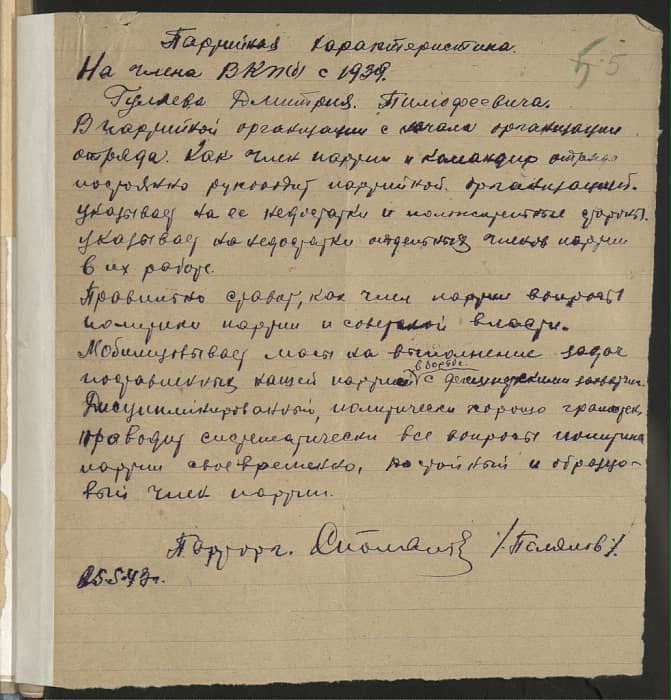 5 5
Партийная характеристика.
На члена ВКП(б) с 1939.
Гуляева Дмитрия. Тимофеевича.
В партийной организации с начала организации
отряда. Как член партии и командир отряда
постоянно руководит партийной. организацией.
указывает на ее недостатки и положительные стороны.
указывает на недостатки отдельных членов партии
в их работе.
Правильно ставит, как член партии вопросы
политики партии и советской власти.
Мобилизовывает массы на выполнение задач
поставленных нашей партией в борьбе с немецкими захватчи.
Дисциплинированный, политически хорошо грамотен,
проводит систематически все вопросы политики
партии своевременно, достойный и образцо-
вый член партии.
Парторг.
25.5.43г.